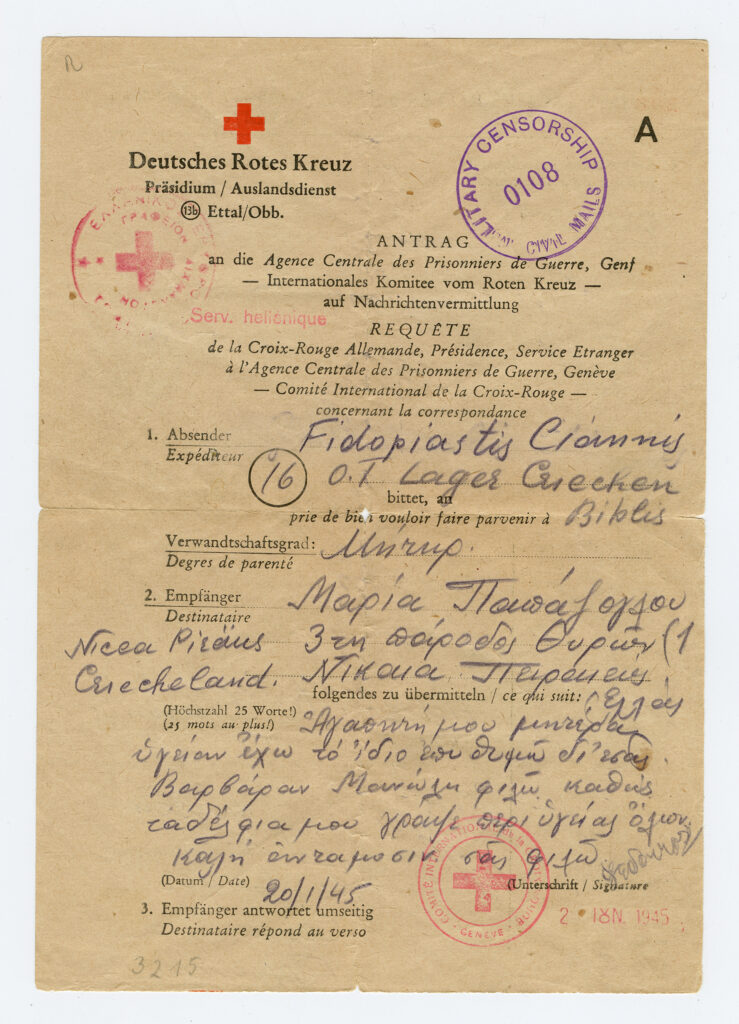 Deutsches Rotes Kreuz
Präsidium / Auslandsdienst
13b Ettal/Obb.
LITARY CENSORSHIP
CIVIL MAILS
0108
A
Serv. hellenique
ANTRAG
an die Agence Centrale des Prisonniers de Guerre, Genf
— Internationales Komitee vom Roten Kreuz —
auf Nachrichtenvermittlung
REQUÊTE
de la Croix-Rouge Allemande, Présidence, Service Etranger
à l'Agence Centrale des Prisonniers de Guerre, Genève
— Comité International de la Croix-Rouge —
concernant la correspondance
1. Absender Fidopiastis Ciannis
Expéditeur
16 O.T Lager Criechen
bittet, an
prie de bien vouloir faire parvenir à Biblis
Verwandtschaftsgrad: Μήτηρ.
Degres de parenté
2. Empfänger Μαρία Παπάζογλου
Destinataire
Nicea Piräus 3τη πάροδος Θυρῶν (1
Criecheland. Νίκαια Πειραιεύς
folgendes zu übermitteln / ce qui suit: Ἑλλάς
(Höchstzahl 25 Worte!)
(25 mots au plus!) Ἀγαπητή μου μητέρα
ὑγείαν ἔχω τὸ ἴδιο ἐπιθυμῶ δι' ἐσᾶς.
Βαρβάραν Μανώλη φιλῶ καθώς
τἀδέλφια μου γράψε περὶ ὑγείας ὅλων
καλή ἀντάμωσιν σᾶς φιλῶ
(Datum / Date) 20/1/45
(Unterschrift / Signature
COMITÉ INTERNATIONAL DE LA CROIX ROUGE
GENÈVE
2 IUN. 1945
3. Empfänger antwortet umseitig
Destinataire répond au verso
3215